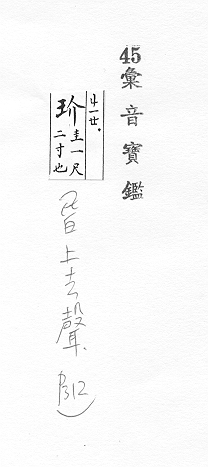 45
彙音寶鑑
玠 圭一尺
二寸也
皆上去聲. P312)